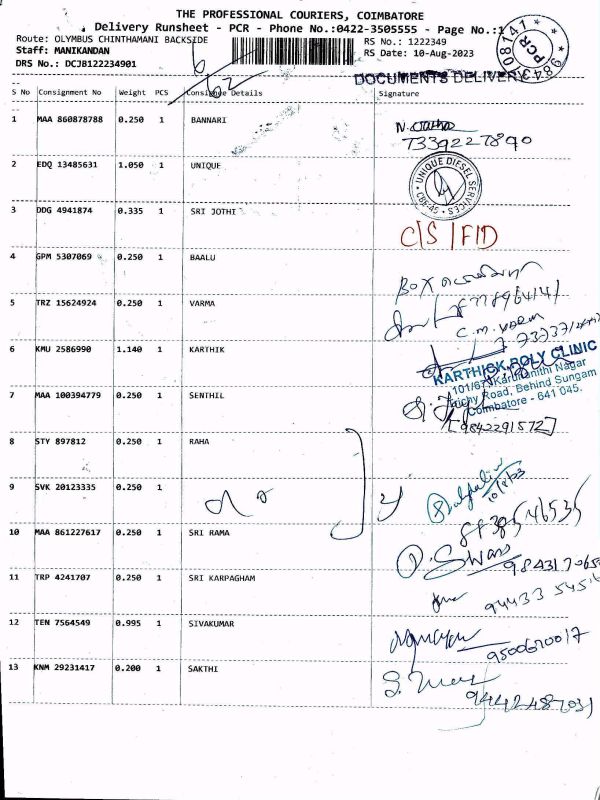 THE PROFESSIONAL COURIERS, COIMBATORE
Delivery Runsheet - PCR - Phone No.:0422-3505555 - Page No.:1
Route: OLYMBUS CHINTHAMANI BACKSIDE
RS No.: 1222349
Staff: MANIKANDAN
RS Date: 10-Aug-2023
DRS No.: DCJB122234901
PCR
DOCUMENTS DELIVERY
6/62
S No Consignment No Weight PCS Consignee Details Signature
1 MAA 860878788 0.250 1 BANNARI
7339227890
2 EDQ 13485631 1.050 1 UNIQUE
UNIQUE DIESEL SERVICES
CBE-45
3 DDG 4941874 0.335 1 SRI JOTHI
C/S/FID
4 GPM 5307069 0.250 1 BAALU
BOX
5 TRZ 15624924 0.250 1 VARMA
C.M. VARMA
6 KMU 2586990 1.140 1 KARTHIK
KARTHICK POLY CLINIC
101/67, Karunanithi Nagar
Trichy Road, Behind Sungam
Coimbatore - 641 045.
7 MAA 100394779 0.250 1 SENTHIL
[9842291572]
8 STY 897812 0.250 1 RAHA
9 SVK 20123335 0.250 1
10/8/23
10 MAA 861227617 0.250 1 SRI RAMA
11 TRP 4241707 0.250 1 SRI KARPAGHAM
12 TEN 7564549 0.995 1 SIVAKUMAR
9500670017
13 KNM 29231417 0.200 1 SAKTHI